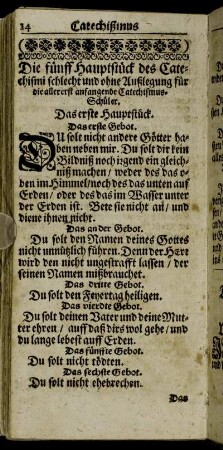 14 Catechißmus
Die fünff Hauptstück des Cate-
chismi schlecht und ohne Außlegung für
die allererst anfangende Catechismus-
Schüler.
Das erste Hauptstück.
Das erste Gebot.
DU solt nicht andere Götter ha-
ben neben mir. Du solt dir kein
Bildniß noch irgend ein gleich-
niß machen / weder des das o-
ben im Himmel / noch des das unten auf
Erden / oder des das im Wasser unter
der Erden ist. Bete sie nicht an / und
diene ihnen nicht.
Das ander Gebot.
Du solt den Namen deines Gottes
nicht unnützlich führen. Denn der Herr
wird den nicht ungestrafft lassen / der
seinen Namen mißbrauchet.
Das dritte Gebot.
Du solt den Feyertag heiligen.
Das vierdte Gebot.
Du solt deinen Vater und deine Mut-
ter ehren / auff daß dirs wol gehe / und
du lange lebest auff Erden.
Das fünffte Gebot.
Du solt nicht tödten.
Das sechste Gebot.
Du solt nicht ehebrechen.
Das